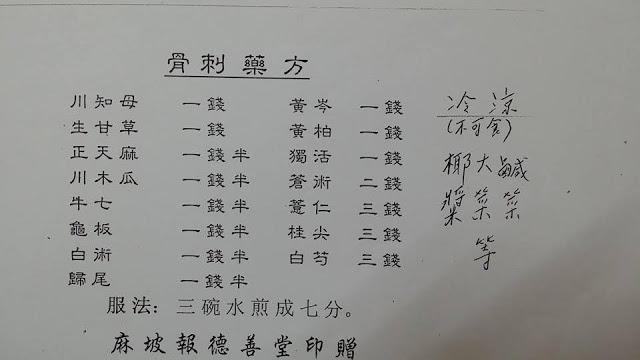 骨刺藥方
川知母 一錢 黃岑 一錢
生甘草 一錢 黃柏 一錢
正天麻 一錢半 獨活 一錢
川木瓜 一錢半 蒼術 二錢
牛七 一錢半 薏仁 三錢
龜板 一錢半 桂尖 三錢
白術 一錢半 白芍 三錢
歸尾 一錢半
服法：三碗水煎成七分。
麻坡報德善堂印贈
冷涼
(不可食)
椰漿
大菜
鹹菜
等